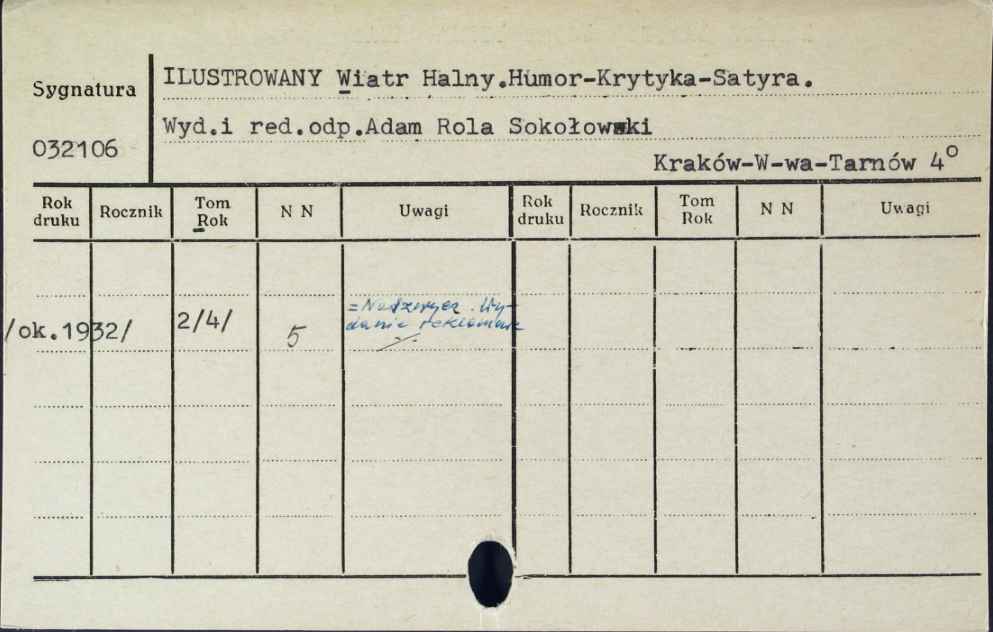 Sygnatura
032106
ILUSTROWANY Wiatr Halny.Humor-Krytyka-Satyra.
Wyd.i red.odp.Adam Rola Sokołowski
Kraków-W-wa-Tarnów 4°
Rok druku Rocznik Tom Rok N N Uwagi Rok druku Rocznik Tom Rok N N Uwagi
/ok.1932/ 2/4/ 5 =Nadzwycz. Wy-
danie reklamowe